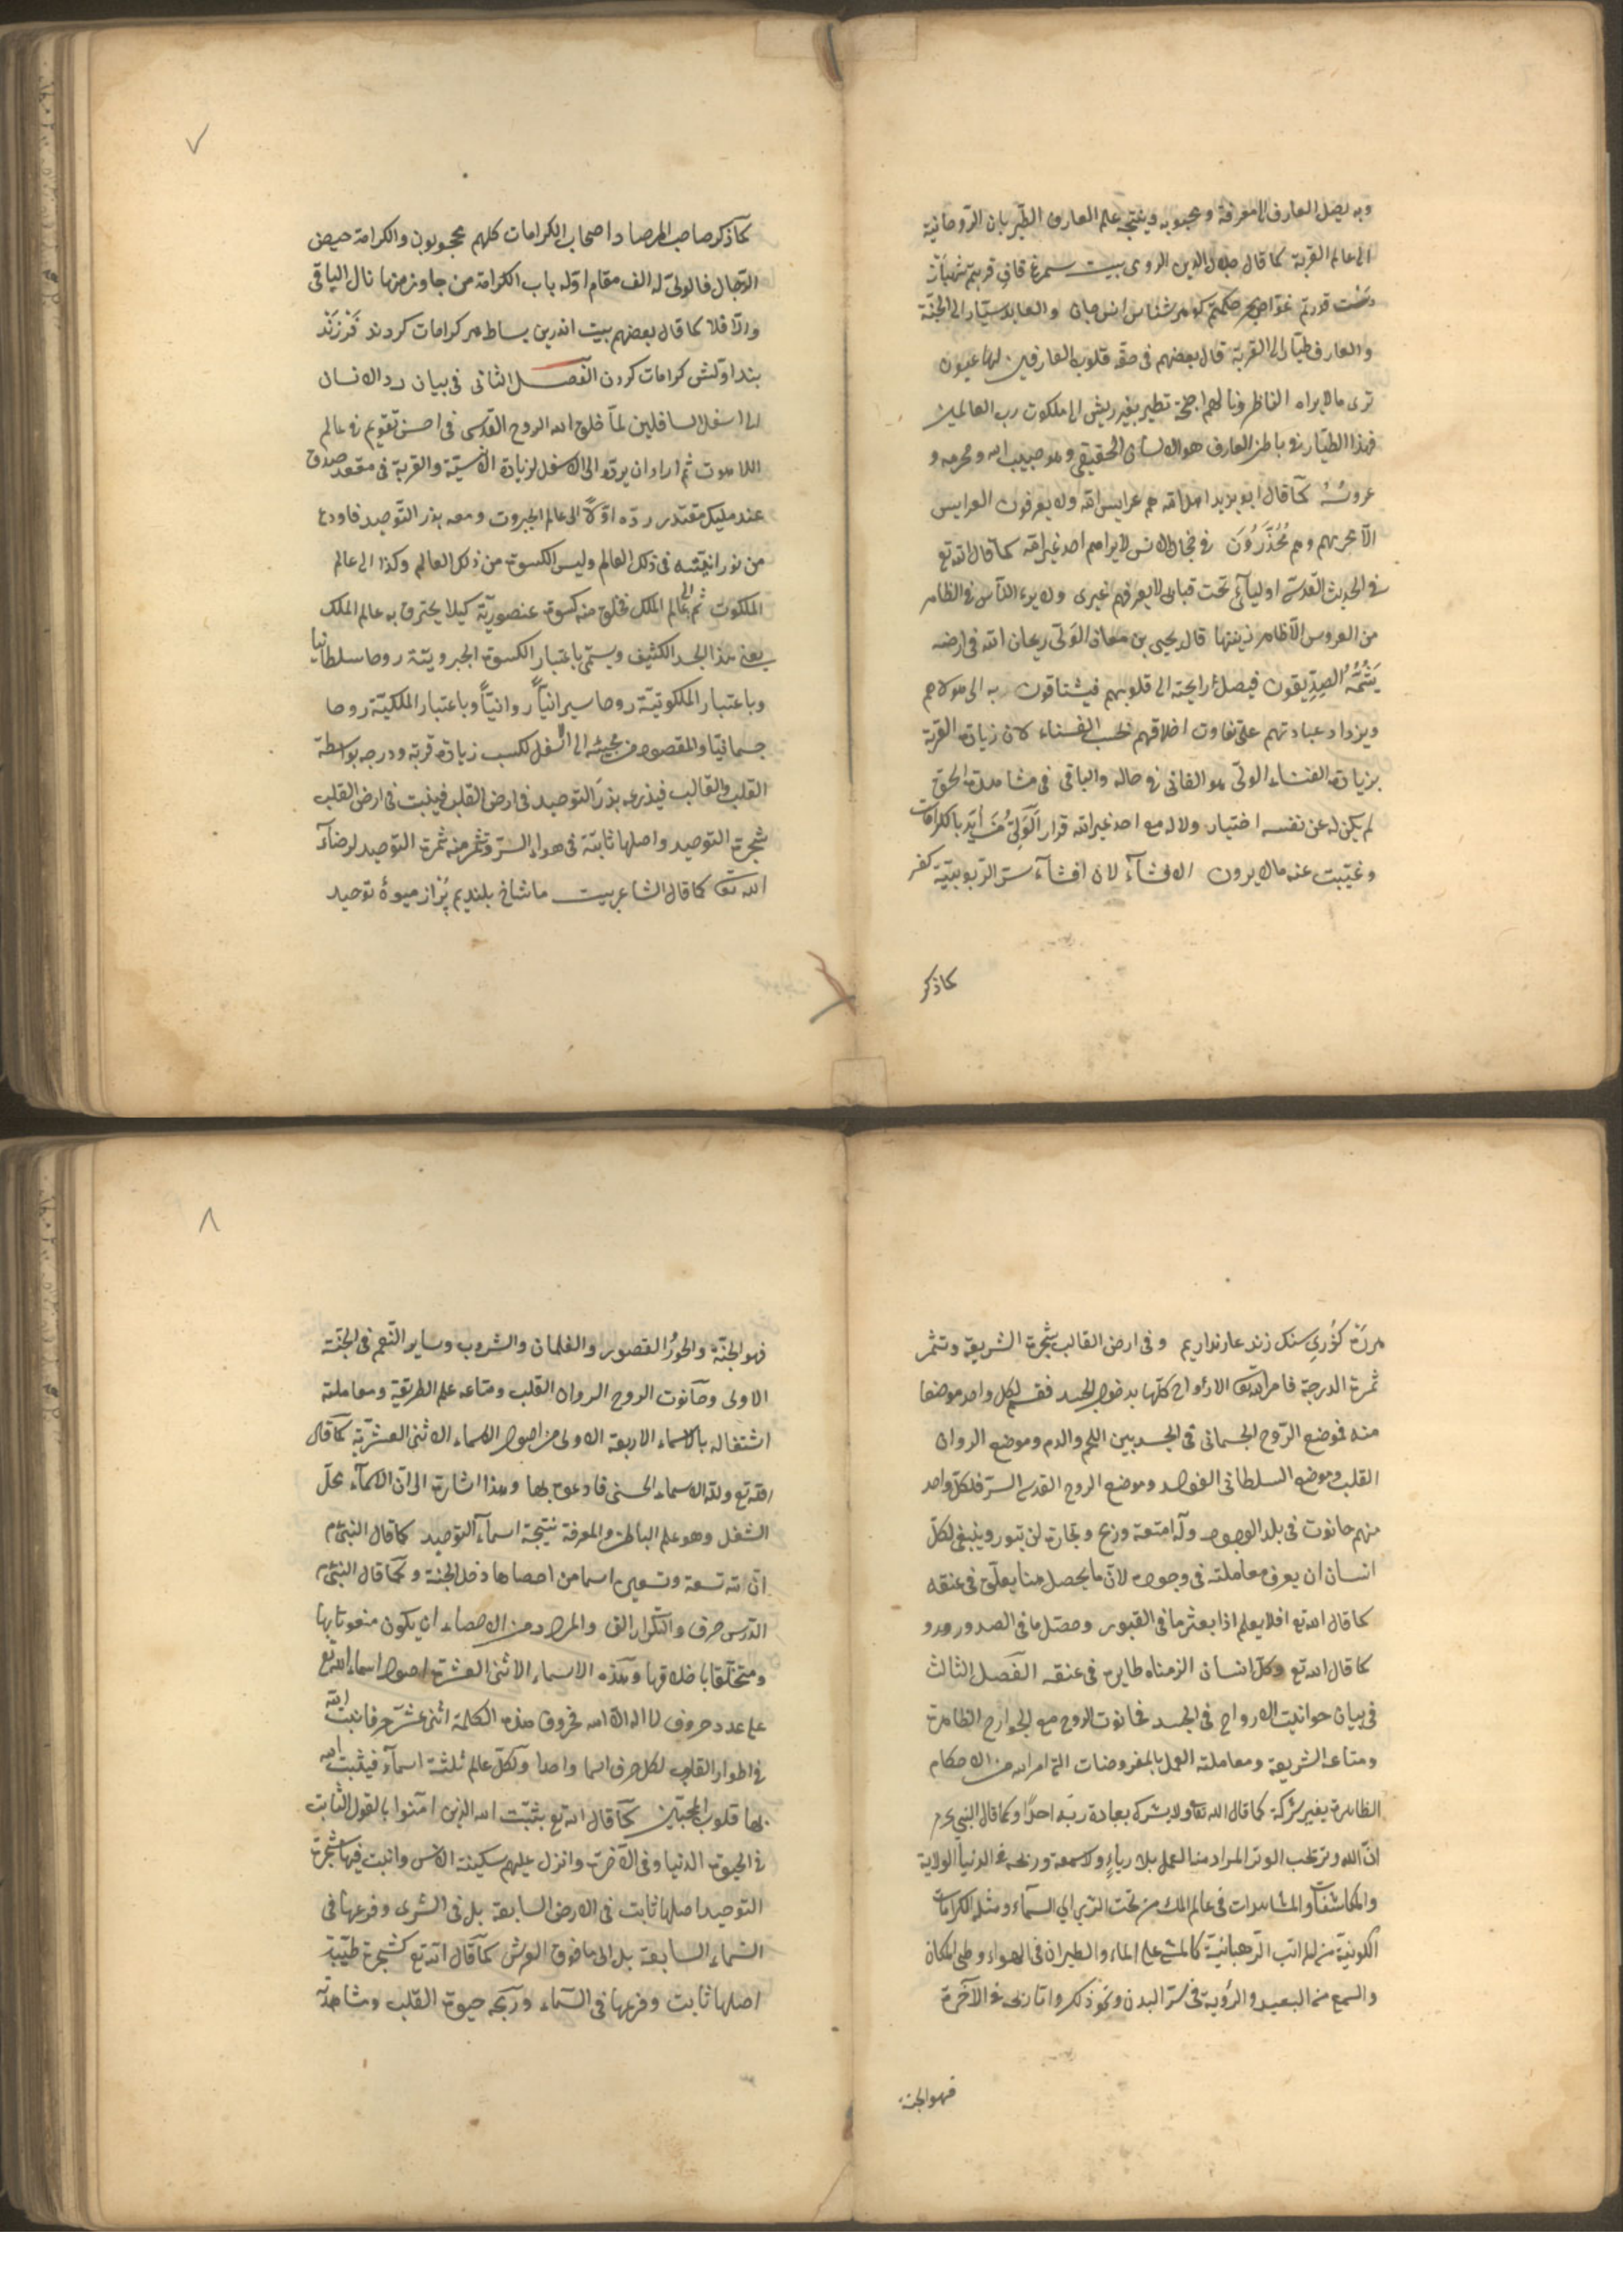 وبه يصل العارف الى معرفة ومحبوبه ونتيجة علم العارف الطيربان الروحانية
الى عالم القربة كما قال جلال الدين الرومى بيت سيمرغ قاف قربتم شهباز
دست قدرتم غواص بحر حكمتم كوهر شناس انس جان والعابد سيّار الى الجنّة
والعارف طيّار الى القربة قال بعضهم فى حقه قلوب العارفين لها عيون
ترى مالا يراه الناظرونا لهم اجنحة تطير بغير ريش الى ملكوت رب العالمين
فهذا الطيّار فى باطن العارف هو الانسان الحقيقى وهو حبيب الله ومحرمه و
عروسه كما قال ابو يزيد اهل الله هم عرايس الله ولا يعرفون العرايس
الّا محرمهم وهم مُخدَّرون فى حجال الانس لا يراهم احد غير الله كما قال الله تع
فى الحديث القدسى اوليائى تحت قبابى لا يعرفهم غيرى ولا يرى الناس فى الظاهر
من العروس الّا ظاهر زينتها قال يحيى بن معاذ الولى ريحان الله فى ارضه
يَشُمُّهُ الصِدّيقون فيصل رايحته الى قلوبهم فيشتاقون به الى مولاهم
ويزداد عبادتهم على تفاوت اخلاقهم بحسب الفناء لان زيادة القربة
بزيادة الفناء الولى هو الفانى فى حاله والباقى فى مشاهدة الحق
لم يكن له عن نفسه اختيار ولا له مع احد غير الله قرار الولىّ مَن ايّد بالكرامات
وغيّبت عنه مالا يرون الافشآء لان افشآء سرّ الربوبيّة كفر
كما ذكر
٧
كما ذكر صاحب المرصاد اصحاب الكرامات كلهم محجوبون والكرامة حيض
الرّجال فالولىّ له الف مقام اوّله باب الكرامة من جاوز منها نال الباقى
والّا فلا كما قال بعضهم بيت اندرين بساط هر كرامات كردند فَرزَند
بند اولش كرامات كردن الفصل الثانى فى بيان رد الانسان
الى اسفل السافلين لمّا خلق الله الروح القدسى فى احسن تقويم فى عالم
اللاهوت ثم اراد ان يردّه الى الاسفل لزيادة الانسيّة والقربة فى مقعد صدق
عند مليك مقتدر ردّه اوّلاً الى عالم الجبروت ومعه بذر التّوحيد فاودع
من نورانيّته فى ذلك العالم ولبس الكسوة من ذلك العالم وكذا الى عالم
الملكوت ثم الى عالم الملك فخلق منه كسوة عنصوريّة كيلا يحترق به عالم الملك
يعنى هذا الجسد الكثيف ويسمّى باعتبار الكسوة الجبرويتة روحا سلطانيا
وباعتبار الملكوتيّة روحا سيرانيّاً روانيّاً وباعتبار الملكيّة روحا
جسمانيّا والمقصود من مجيئه الى اسفل لكسب زيادة قربة ودرجه بواسطة
القلب والقالب فيذرع بذر التوحيد فى ارض القلب فينبت فى ارض القلب
شجرة التوحيد واصلها ثابتة فى هواء السرّ وتثمر منه ثمرة التوحيد لرضآء
الله تعالى كما قال الشاعر بيت ما شاخ بلنديم پُر از ميوۀ توحيد
هر رَه كذُرى سنك زند عار نداريم وفى ارض القالب شجرة الشريعة وتثمر
ثمرة الدرجة فامر الله تعالى الارواح كلّها بدخول الجسد فقسم لكل واحد موضعا
منه فموضع الرّوح الجسمانى فى الجسد بين اللحم والدم وموضع الروان
القلب وموضع السلطانى الفواد وموضع الروح القدسى السرّ فلكلّ واحد
منهم حانوت فى بلد الوجود وله امتعة وربح وتجارة لن تبور وينبغى لكلّ
انسان ان يعرف معاملته فى وجوده لانّ ما يحصل هنا يعلّق فى عنقه
كما قال الله تع افلا يعلم اذا بعثر ما فى القبور وحصّل ما فى الصدور و
كما قال الله تع وكلّ انسان الزمناه طايره فى عنقه الفصل الثالث
فى بيان حوانيت الارواح فى الجسد فحانوت الروح مع الجوارح الظاهرة
ومتاعه الشريعة ومعاملته العمل بالمفروضات التى امر الله من الاحكام
الظاهرة بغير شركة كما قال الله تعا ولا يشرك بعبادة ربّه احدًا وكما قال النبى عم
انّ الله وتر يحب الوتر المراد هنا العمل بلا رياءٍ ولا سمعة وربحه فى الدنيا الولاية
والمكاشفات والمشاهدات فى عالم الملك من تحت الثرى الى السمآء ومثله الكرامات
الكونيّة من المراتب الرّهبانيّة كالمشى على الماء والطيران فى الهواء وطى المكان
والسمع من البعيد والرؤية فى سرّ البدن ونحو ذلك وامّا ربحه فى الآخرة
فهو الجنة
٨
فهو الجنّة والحورُ القصور والغلمان والشروب وساير النّعم فى الجنّة
الاولى وحآنوت الروح الروان القلب ومتاعه علم الطريقة ومعاملته
اشتغاله بالاسماء الاربعة الاولى من اصول الاسماء الاثنى العشريّة كما قال
الله تع ولله الاسماء الحسنى فادعوه بها وهذا اشارة الى انّ الاسمآء محلّ
الشغل وهو علم الباطن والمعرفة نتيجة اسمآء التوحيد كما قال النبى عم
انّ لله تسعة وتسعين اسما من احصاها دخل الجنة وكما قال النبى عم
الدرس حرف والتكرار الف والمراد من الاحصاء ان يكون منعوتا بها
ومتخلّقا باخلاقها وهذه الاسماء الاثنى العشرة اصول اسماء الله تع
على عدد حروف لا اله الا الله فحروف هذه الكلمة اثنى عشر حرفا ثبت الله
فى اطوار القلوب لكل حرف اسما واحدا ولكلّ عالم ثلثة اسمآء فيثبت الله
بها قلوب المحبّين كما قال الله تع يثبّت الله الذين آمنوا بالقول الثابت
فى الحيوة الدنيا وفى الآخرة وانزل عليهم سكينة الانس وانبت فيها شجرة
التوحيد اصلها ثابت فى الارض السابعة بل فى الثرى وفرعها فى
السّماء السابعة بل الى ما فوق العرش كما قال الله تع كشجرة طيّبة
اصلها ثابت وفرعها فى السّماء وربحه حيوة القلب ومشاهدة